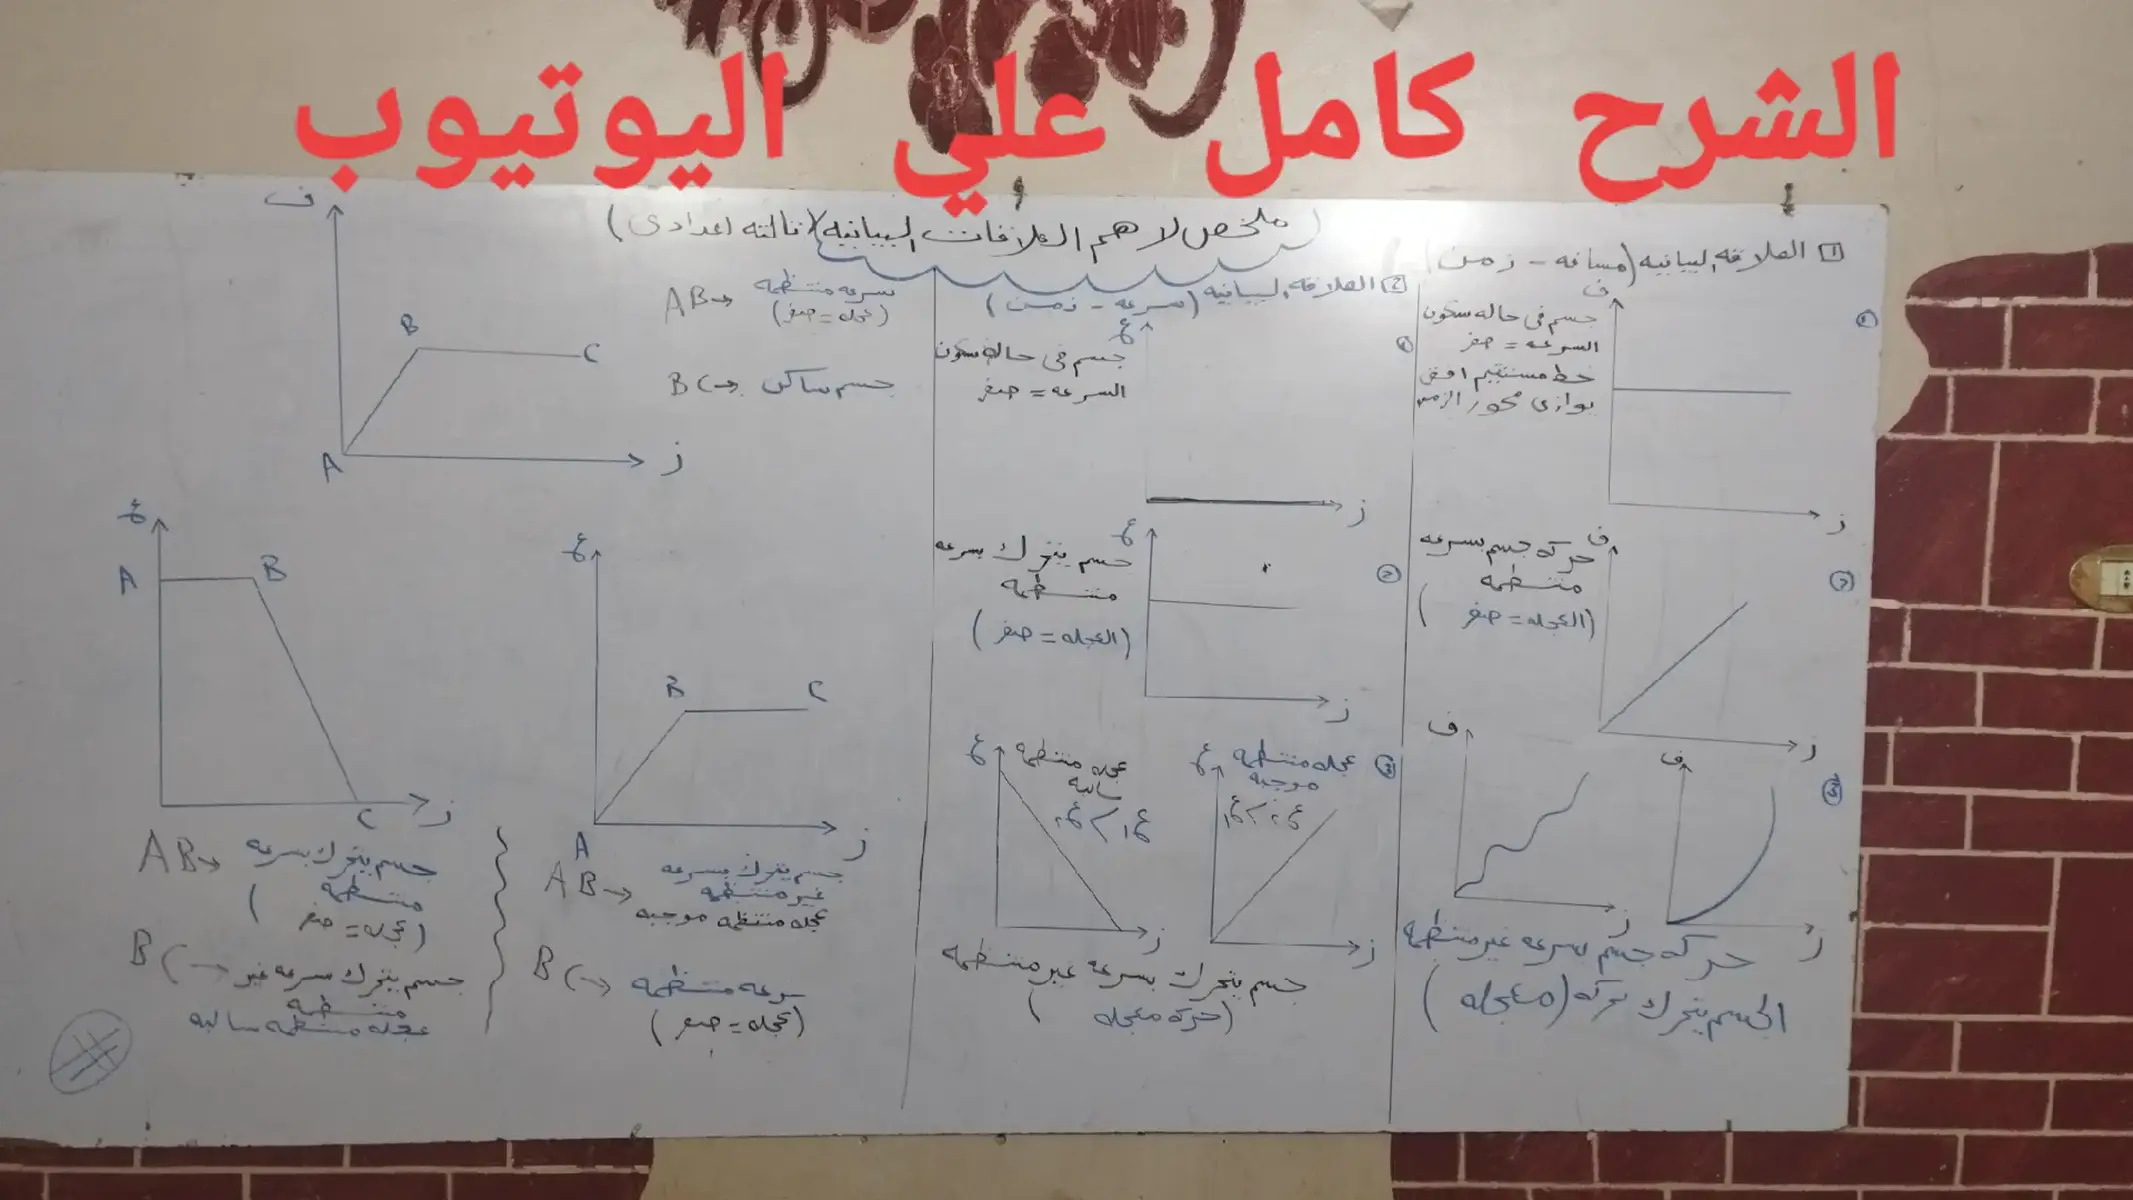 الشرح كامل علي اليوتيوب
ملخص لاهم العلاقات البيانيه (تالته اعدادى)
1 العلاقه البيانيه (مسافه - زمن)
1
ف
جسم فى حاله سكون
السرعه = صفر
خط مستقيم افقى
يوازى محور الزمن
ز
2
ف
حركه جسم بسرعه
منتظمه
(العجله = صفر)
ز
3
ف
ز
ف
ز
حركه جسم بسرعه غير منتظمه
الجسم يتحرك حركه (معجله)
2 العلاقه البيانيه
(سرعه - زمن)
1
ع
جسم فى حاله سكون
السرعه = صفر
ز
2
ع
جسم يتحرك بسرعه
منتظمه
(العجله = صفر)
ز
3
عجله منتظمه
موجبه
ع
ع٢ > ع١
ز
ع
عجله منتظمه
سالبه
ع١ > ع٢
ز
جسم يتحرك بسرعه غير منتظمه
(حركه معجله)
ف
A
B
C
ز
AB→ سرعه منتظمه
(عجله = صفر)
BC→ جسم ساكن
ع
B
C
A
ز
AB→ جسم يتحرك بسرعه
غير منتظمه
عجله منتظمه موجبه
BC→ سرعه منتظمه
(عجله = صفر)
ع
A
B
C
ز
AB→ جسم يتحرك بسرعه
منتظمه
(عجله = صفر)
BC→ جسم يتحرك بسرعه غير
منتظمه
عجله منتظمه سالبه